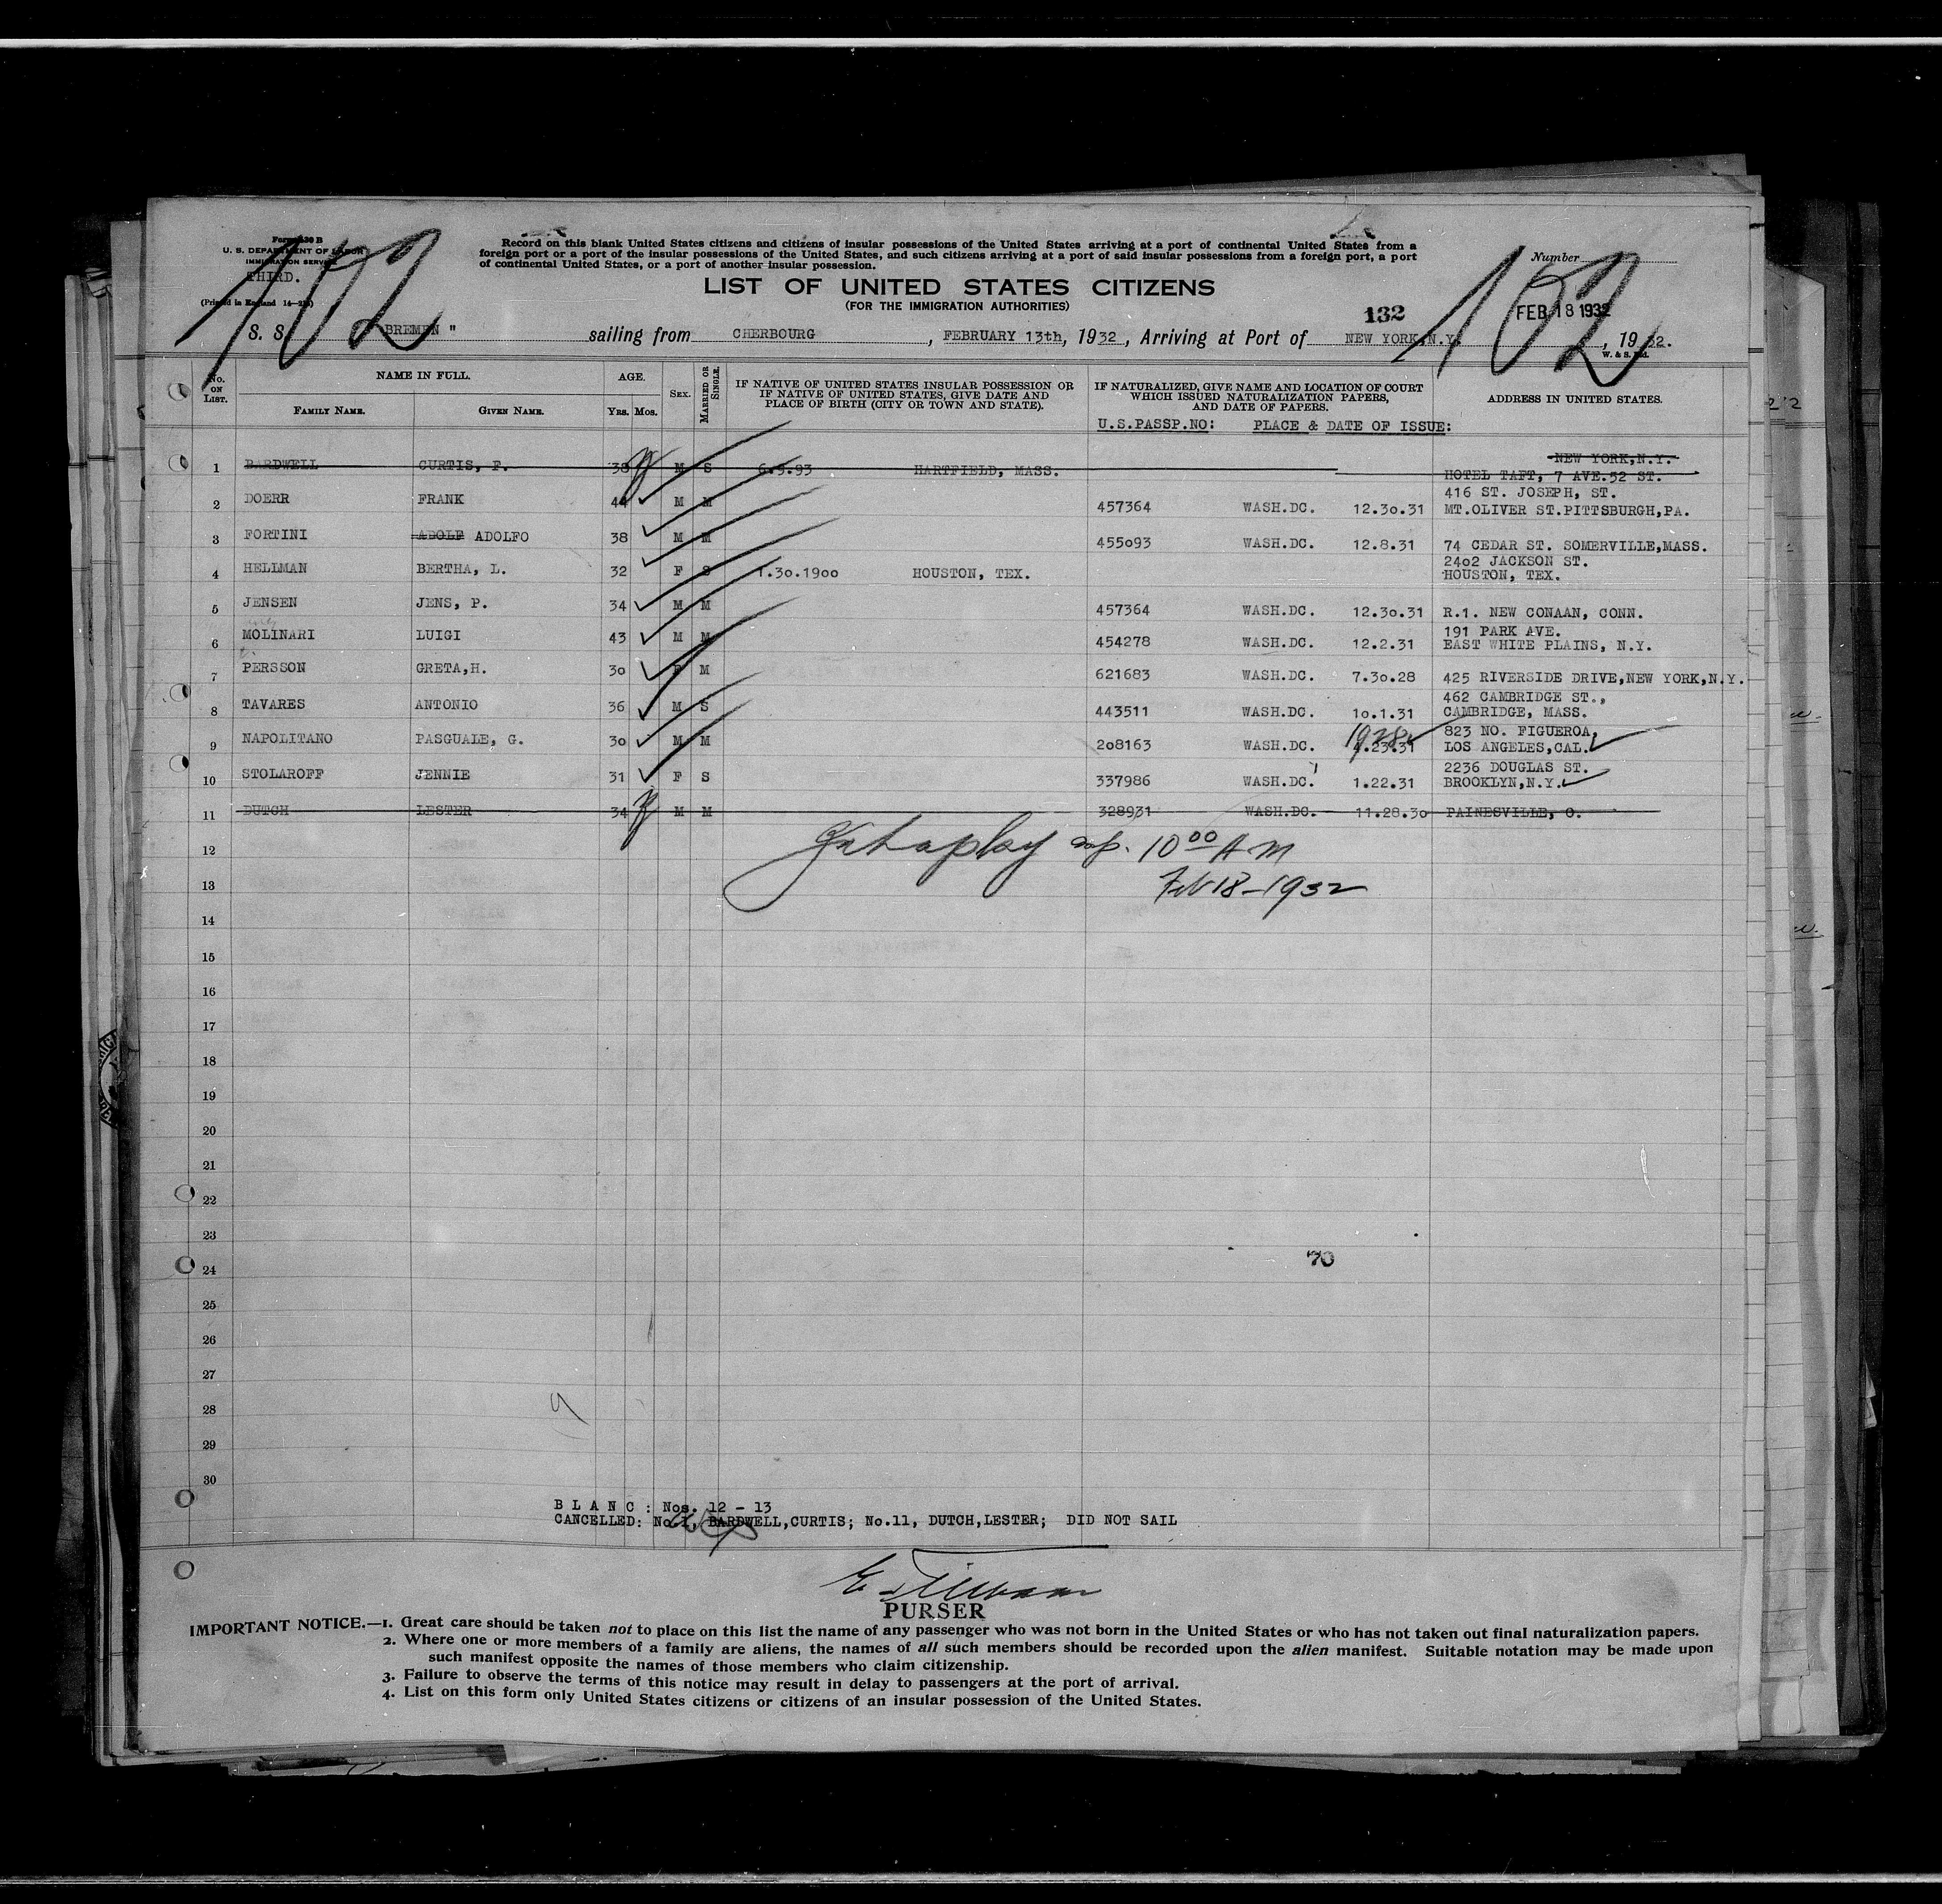 Form 630 B
U. S. DEPARTMENT OF LABOR
IMMIGRATION SERVICE
THIRD.
(Printed in England 14-2-)
102
Record on this blank United States citizens and citizens of insular possessions of the United States arriving at a port of continental United States from a
foreign port or a port of the insular possessions of the United States, and such citizens arriving at a port of said insular possessions from a foreign port, a port
of continental United States, or a port of another insular possession.
Number
102
LIST OF UNITED STATES CITIZENS
(FOR THE IMMIGRATION AUTHORITIES)
132
FEB 18 1932
S. S. BREMEN " sailing from CHERBOURG , FEBRUARY 13th, 1932, Arriving at Port of NEW YORK,N.Y. , 1932.
W. & S. Ltd.
No. ON LIST. NAME IN FULL. AGE. SEX. MARRIED OR SINGLE. IF NATIVE OF UNITED STATES INSULAR POSSESSION OR IF NATIVE OF UNITED STATES, GIVE DATE AND PLACE OF BIRTH (CITY OR TOWN AND STATE). IF NATURALIZED, GIVE NAME AND LOCATION OF COURT WHICH ISSUED NATURALIZATION PAPERS, AND DATE OF PAPERS. ADDRESS IN UNITED STATES.
FAMILY NAME. GIVEN NAME. YRS. MOS.
U.S.PASSP.NO: PLACE & DATE OF ISSUE:
1 BARDWELL CURTIS, F. 38 M S 6.9.93 HARTFIELD, MASS. NEW YORK,N.Y.
HOTEL TAFT, 7 AVE.52 ST.
2 DOERR FRANK 44 M M 457364 WASH.DC. 12.30.31 416 ST. JOSEPH, ST.
MT.OLIVER ST.PITTSBURGH,PA.
3 FORTINI ADOLF ADOLFO 38 M M 455093 WASH.DC. 12.8.31 74 CEDAR ST. SOMERVILLE,MASS.
4 HELLMAN BERTHA, L. 32 F S 1.30.1900 HOUSTON, TEX. 2402 JACKSON ST.
HOUSTON, TEX.
5 JENSEN JENS, P. 34 M M 457364 WASH.DC. 12.30.31 R.1. NEW CONAAN, CONN.
6 MOLINARI LUIGI 43 M M 454278 WASH.DC. 12.2.31 191 PARK AVE.
EAST WHITE PLAINS, N.Y.
7 PERSSON GRETA,H. 30 F M 621683 WASH.DC. 7.30.28 425 RIVERSIDE DRIVE,NEW YORK,N.Y.
8 TAVARES ANTONIO 36 M S 443511 WASH.DC. 10.1.31 462 CAMBRIDGE ST.,
CAMBRIDGE, MASS.
9 NAPOLITANO PASGUALE, G. 30 M M 208163 WASH.DC. 4.23.31 1928 823 NO. FIGUEROA,
LOS ANGELES,CAL.
10 STOLAROFF JENNIE 31 F S 337986 WASH.DC. 1.22.31 2236 DOUGLAS ST.
BROOKLYN,N.Y.
11 DUTCH LESTER 34 M M 328931 WASH.DC. 11.28.30 PAINESVILLE, O.
12 insp. 10 00 AM
13 Feb 18-1932
14
15
16
17
18
19
20
21
22
23
70
24
25
26
27
28
29
30
9
BLANC: Nos. 12 - 13
CANCELLED: No.1, BARDWELL,CURTIS; No.11, DUTCH,LESTER; DID NOT SAIL
PURSER
IMPORTANT NOTICE.—1. Great care should be taken not to place on this list the name of any passenger who was not born in the United States or who has not taken out final naturalization papers.
2. Where one or more members of a family are aliens, the names of all such members should be recorded upon the alien manifest. Suitable notation may be made upon
such manifest opposite the names of those members who claim citizenship.
3. Failure to observe the terms of this notice may result in delay to passengers at the port of arrival.
4. List on this form only United States citizens or citizens of an insular possession of the United States.